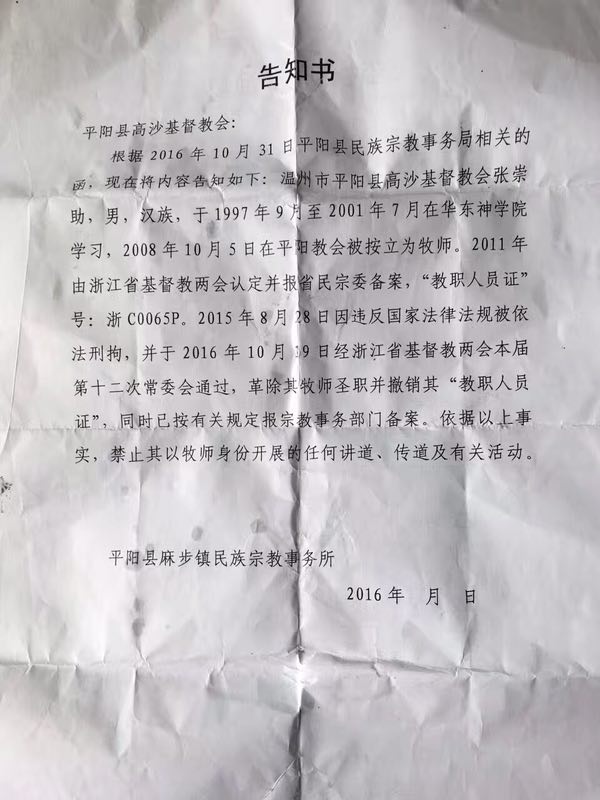 告知书
平阳县高沙基督教会：
根据 2016 年 10 月 31 日平阳县民族宗教事务局相关的
函，现在将内容告知如下：温州市平阳县高沙基督教会张崇
助，男，汉族，于 1997 年 9 月至 2001 年 7 月在华东神学院
学习，2008 年 10 月 5 日在平阳教会被按立为牧师。2011 年
由浙江省基督教两会认定并报省民宗委备案，“教职人员证”
号：浙 C0065P。2015 年 8 月 28 日因违反国家法律法规被依
法刑拘，并于 2016 年 10 月 19 日经浙江省基督教两会本届
第十二次常委会通过，革除其牧师圣职并撤销其“教职人员
证”，同时已按有关规定报宗教事务部门备案。依据以上事
实，禁止其以牧师身份开展的任何讲道、传道及有关活动。
平阳县麻步镇民族宗教事务所
2016 年 月 日